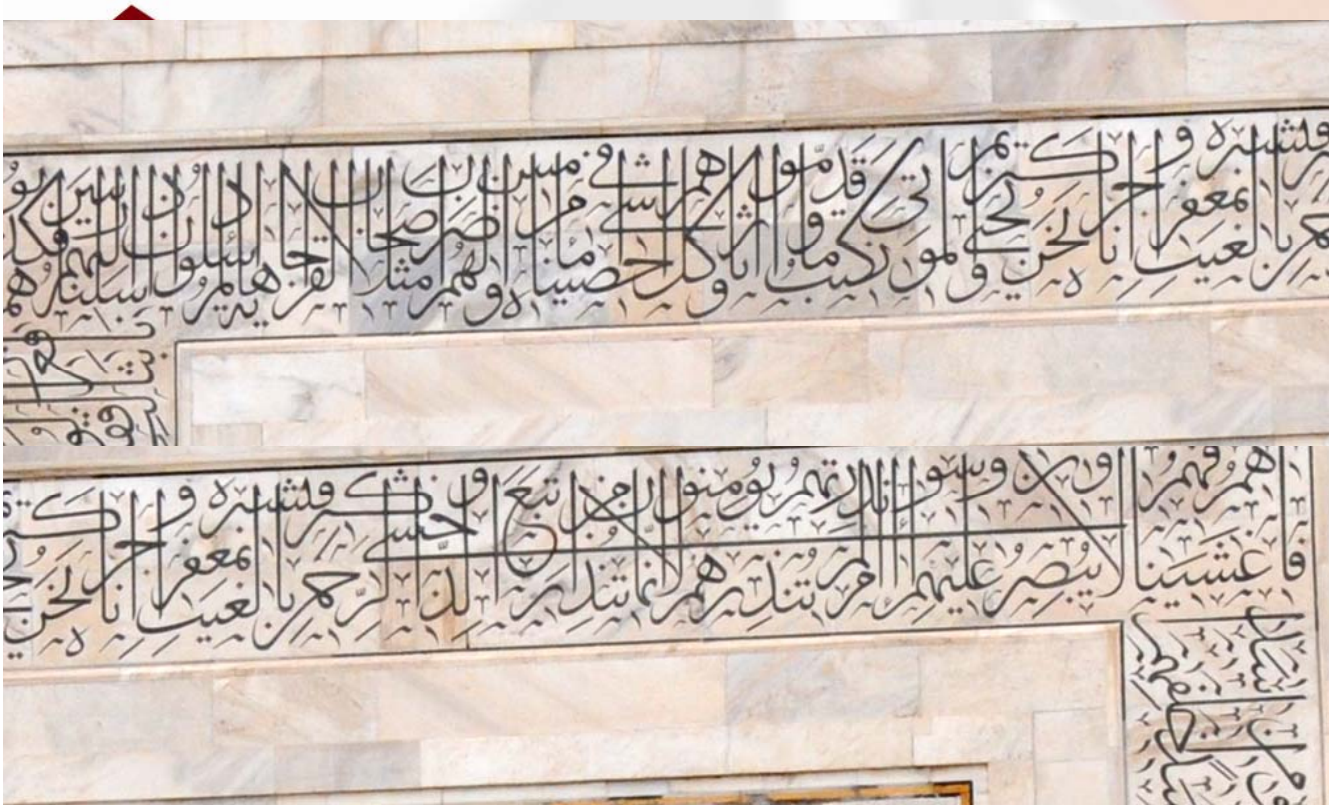 بالغيب فبشره بمغفرة وأجر كريم إنا نحن نحي الموتى ونكتب ما قدموا وآثارهم وكل شيء أحصيناه في إمام مبين واضرب لهم مثلا أصحاب القرية إذ جاءها المرسلون إذ أرسلنا إليهم اثنين فكذبوهما
فأغشيناهم فهم لا يبصرون وسواء عليهم أأنذرتهم أم لم تنذرهم لا يؤمنون إنما تنذر من اتبع الذكر وخشي الرحمن بالغيب فبشره بمغفرة وأجر كريم إنا نحن